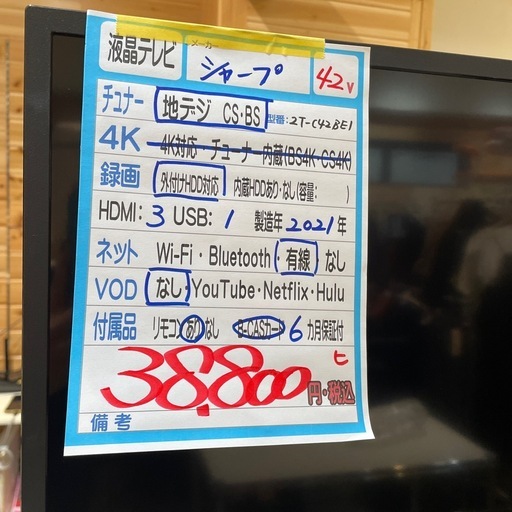 液晶テレビ メーカー シャープ 42V
チュナー 地デジ CS・BS 型番：2T-C42BE1
4K 4K対応・チューナー内蔵(BS4K・CS4K)
録画 外付けHDD対応 内蔵HDDあり・なし(容量： )
HDMI: 3 USB: 1 製造年 2021年
ネット Wi-Fi・Bluetooth・有線・なし
VOD なし・YouTube・Netflix・Hulu
付属品 リモコン あり・なし B-CASカード 6カ月保証付
ヒ
38,800円・税込
備考